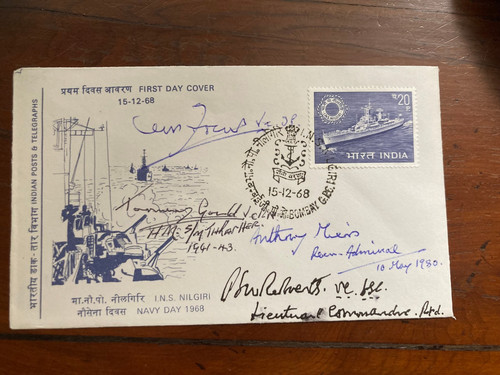 प्रथम दिवस आवरण FIRST DAY COVER
15-12-68
भारतीय डाक-तार विभाग INDIAN POSTS & TELEGRAPHS
20
भारत INDIA
I.N.S. NILGIRI
15-12-68
BOMBAY G.P.O.
Thomas Gould V.C.
H.M. S/M THRASHER.
1941-43.
Anthony Miers
Rear-Admiral
10 May 1980.
PSW Roberts. VC. DSC.
Lieutenant Commander. Rtd.
भा.नौ.पो. नीलगिरि I.N.S. NILGIRI
नौसेना दिवस NAVY DAY 1968